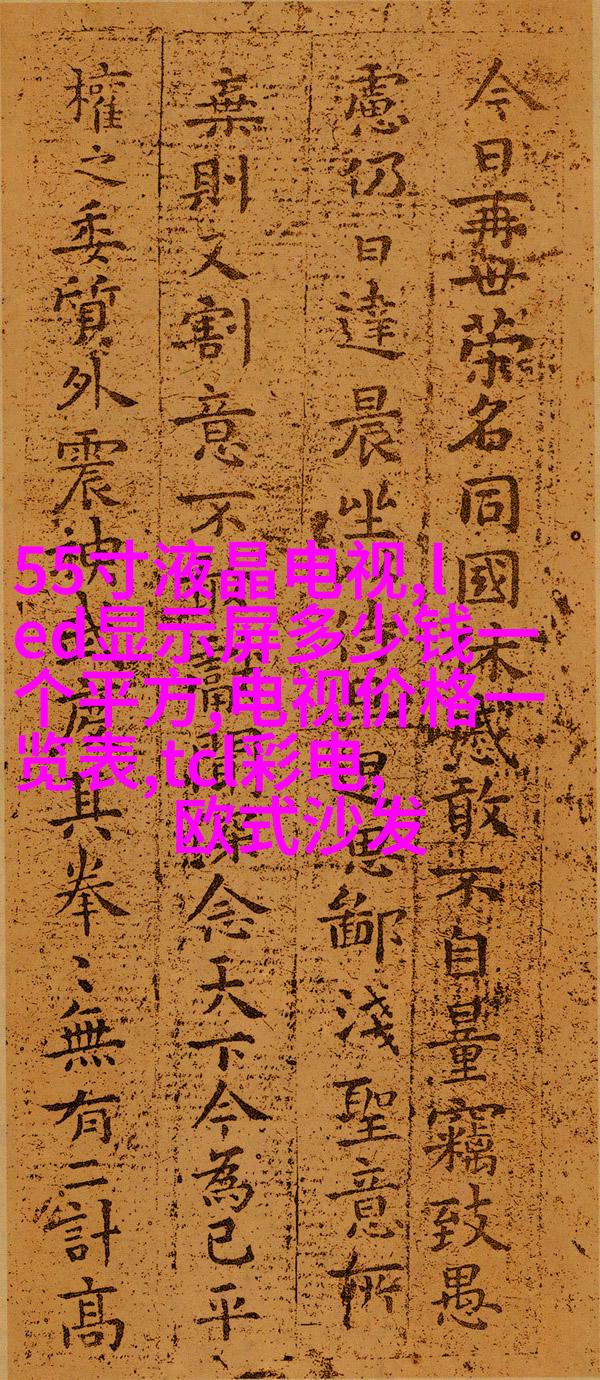 今日再世榮名同國休慼敢不自量竊致愚
慮仍日達晨坐待退思鄙淺聖意所
棄則又割意不聞深念天下今為已平
權之委質外震神武度其拳〻無有二計高
55寸液晶电视,l
ed显示屏多少钱一
个平方,电视价格一
览表,tcl彩电,
欧式沙发